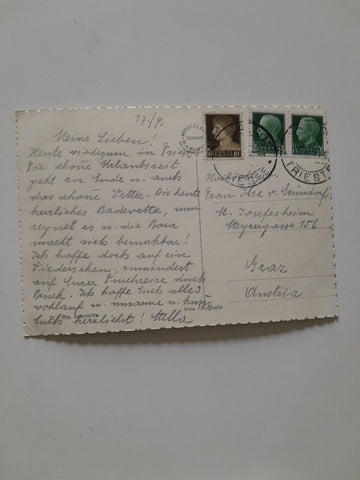 17/9.
Meine Lieben!
Heute wiederum in Triest
Die schöne Urlaubszeit
geht zu Ende u. auch
das schöne Wetter. Bis heute
herrliches Badewetter, nun
regnet es u. die Bora
macht sich bemerkbar!
Ich hoffe doch auf ein
Wiedersehen, zumindest
auf Eurer Durchreise durch
Bruck. Ich hoffe Euch alle 3
wohlauf u. umarme u. küsse
Euch herzlichst! Stella
Frau Ilse v.
Steyrergasse 156
Graz
Austria
TRIESTE
Vera Fotografia